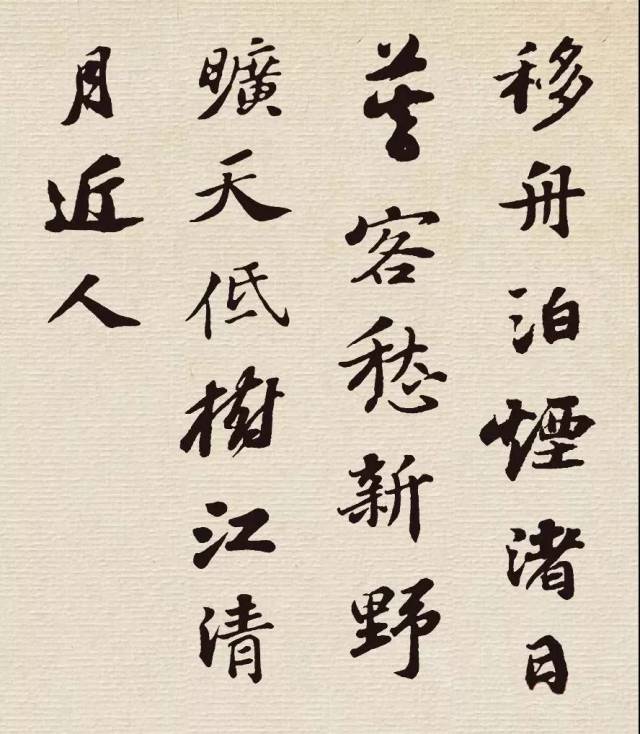 移舟泊煙渚日
暮客愁新野
曠天低樹江清
月近人